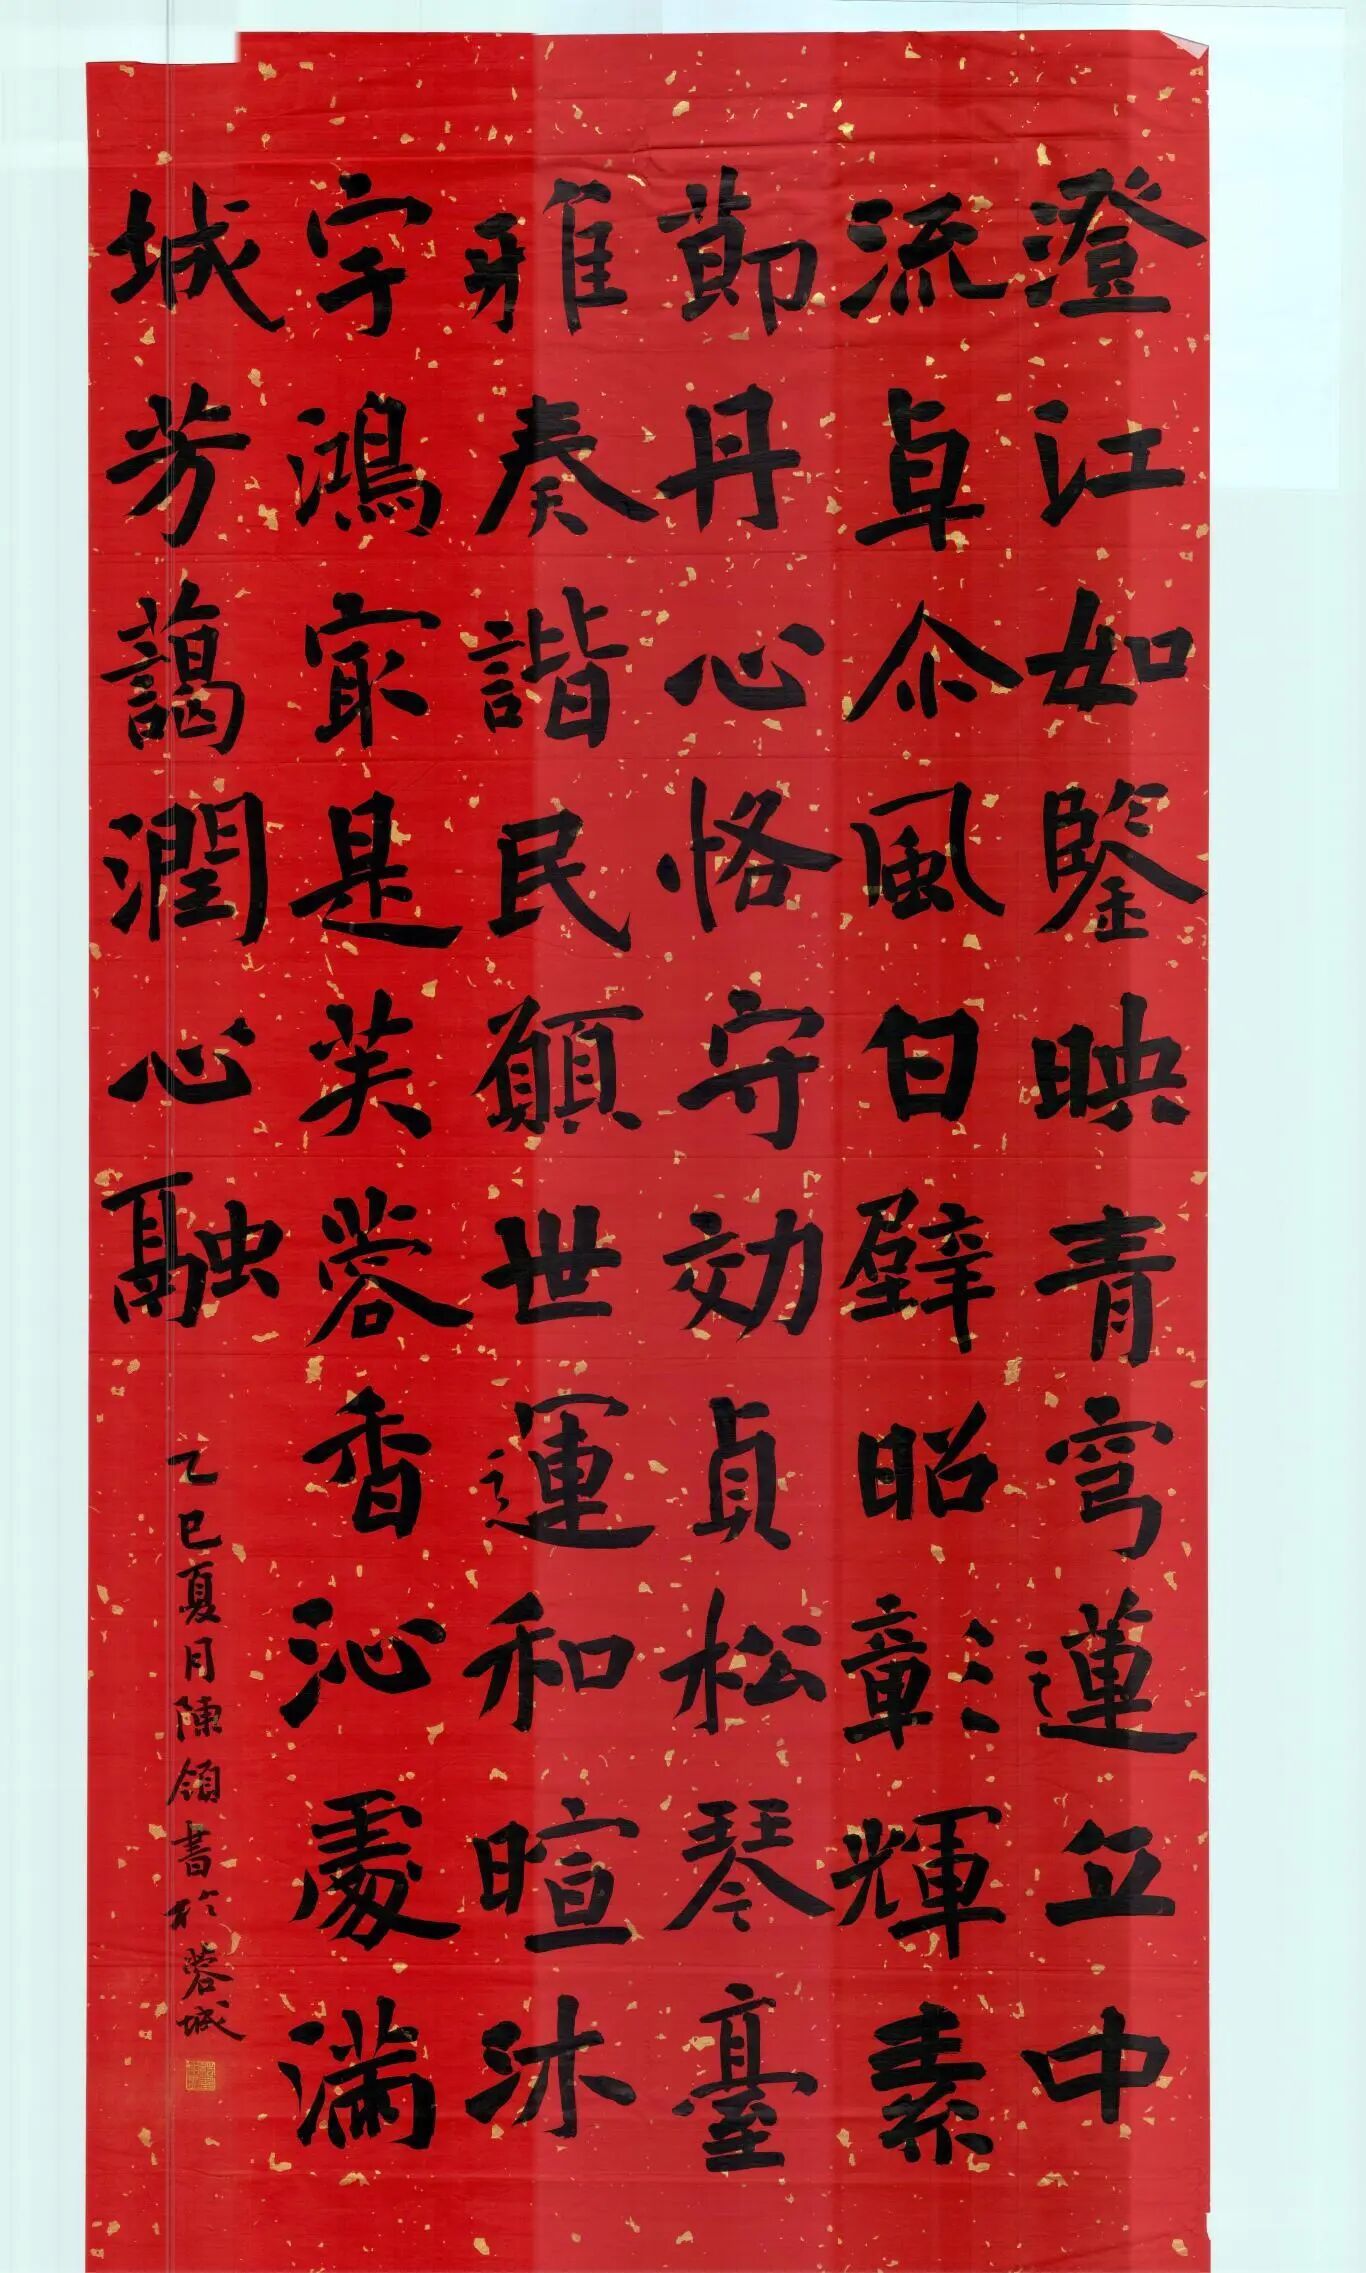 澄江如鑒映青穹蓮立中
流卓尒風白璧昭彰輝素
節丹心恪守効貞松琴臺
雅奏諧民願世運和暄沐
宇鴻寂是芙蓉香沁處滿
城芳藹潤心融
乙巳夏月陳領書於蓉城